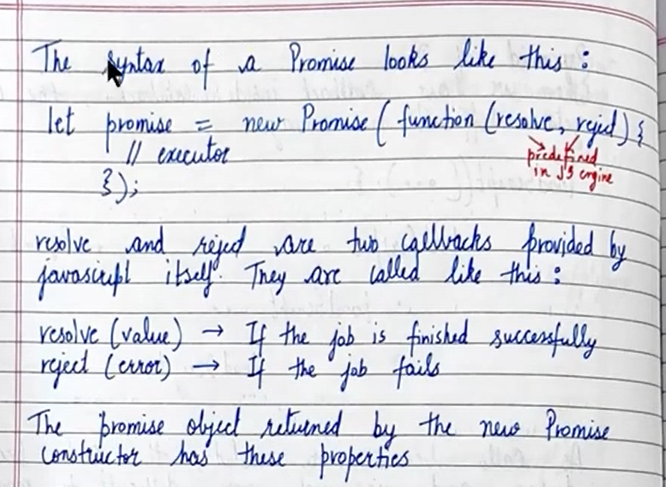 The syntax of a Promise looks like this :
let promise = new Promise ( function (resolve, reject) {
// executor
predefined
in JS engine
});
resolve and reject are two callbacks provided by
javascript itself. They are called like this :
resolve (value) → If the job is finished successfully
reject (error) → If the job fails
The promise object returned by the new Promise
constructor has these properties